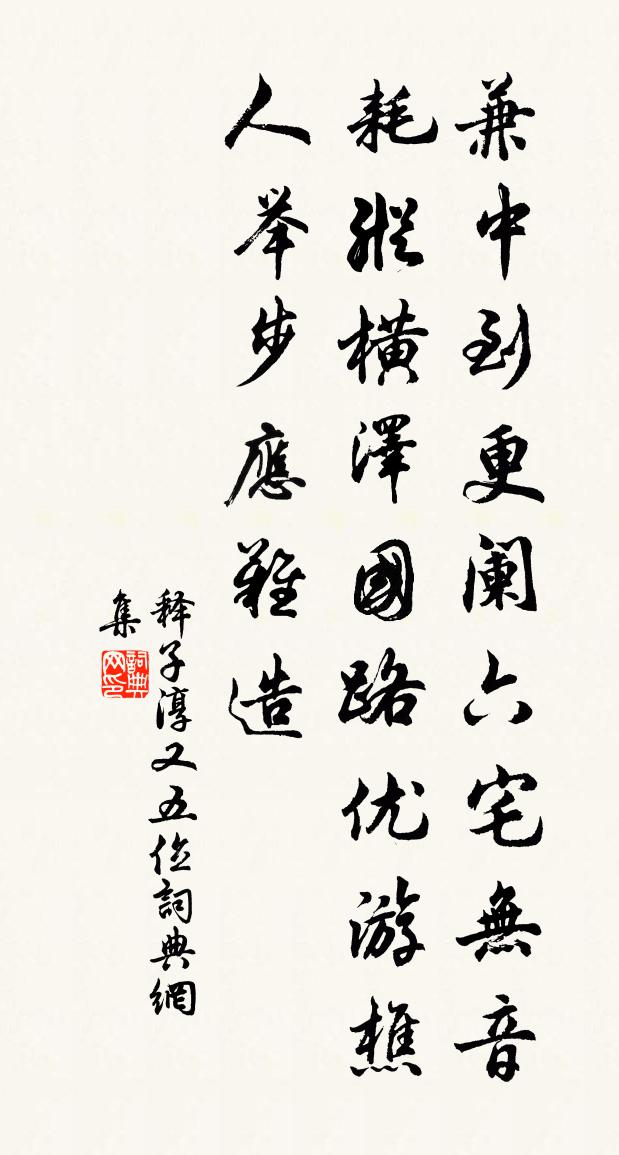 兼中到更阑六宅無音
耗縱橫澤國路优游樵
人举步應難造
释子淳又五位詞典網
集
詞典
网印